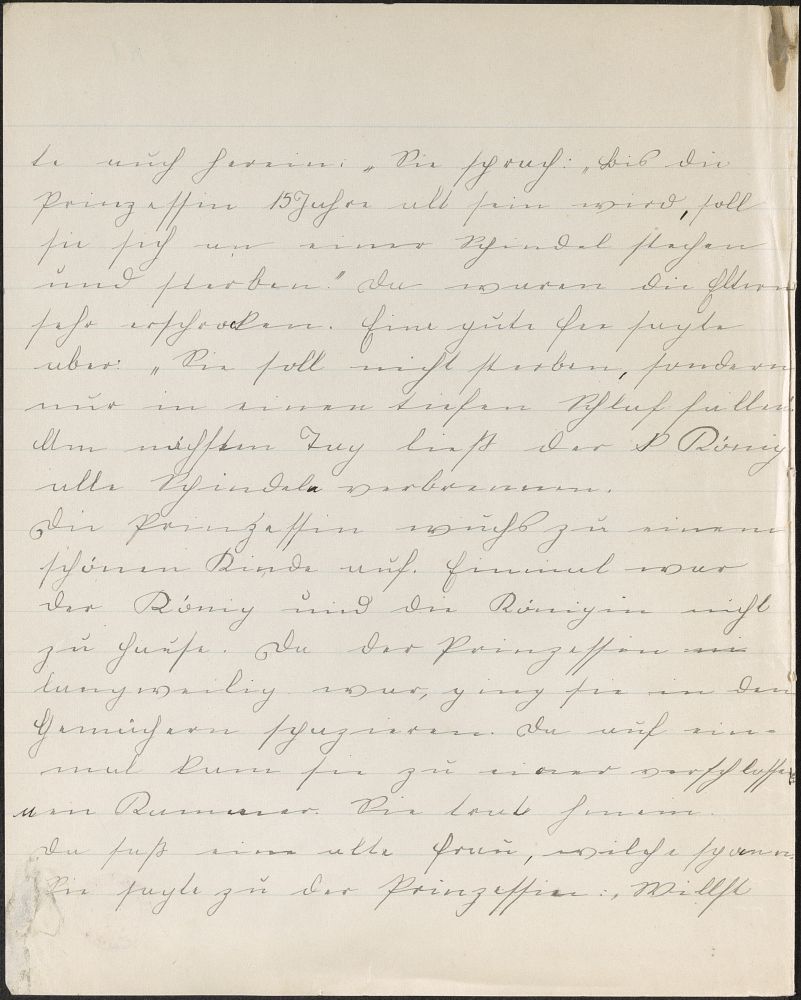 te auch herein: „Sie sprach: „Bis die
Prinzessin 15 Jahre alt sein wird, soll
sie sich an einer Spindel stechen
und sterben." Da waren die Eltern
sehr erschrocken. Eine gute Fee sagte
aber: „Sie soll nicht sterben, sondern
nur in einen tiefen Schlaf fallen.
Am nächsten Tag ließ der König
alle Spindeln verbrennen.
Die Prinzessin wuchs zu einem
schönen Kinde auf. Einmal war
der König und die Königin nicht
zu Hause. Da der Prinzessin
langweilig war, ging sie in den
Gemächern spazieren. Da auf ein-
mal kam sie zu einer verschlosse
nen Kammer. Sie trat hinein.
Da saß eine alte Frau, welche spann.
Sie sagte zu der Prinzessin: „Willst